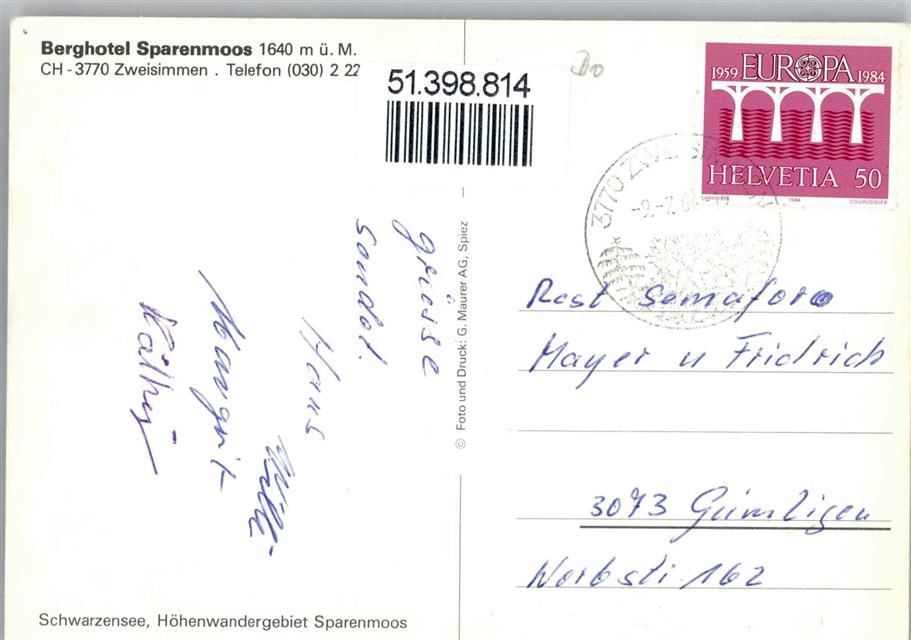 Berghotel Sparenmoos 1640 m ü. M.
CH-3770 Zweisimmen . Telefon (030) 2 22
51.398.814
1959 EUROPA 1984
HELVETIA 50
1984 COURVOISIER
3770 ZWEISIMMEN
-9.-7.
grüsse
sendet.
Hans
Willi
Margrit
Käthi
© Foto und Druck: G. Maurer AG, Spiez
Rest Semaforo
Mayer u Fridrich
3073 Gümligen
Worbstr. 162
Schwarzensee, Höhenwandergebiet Sparenmoos